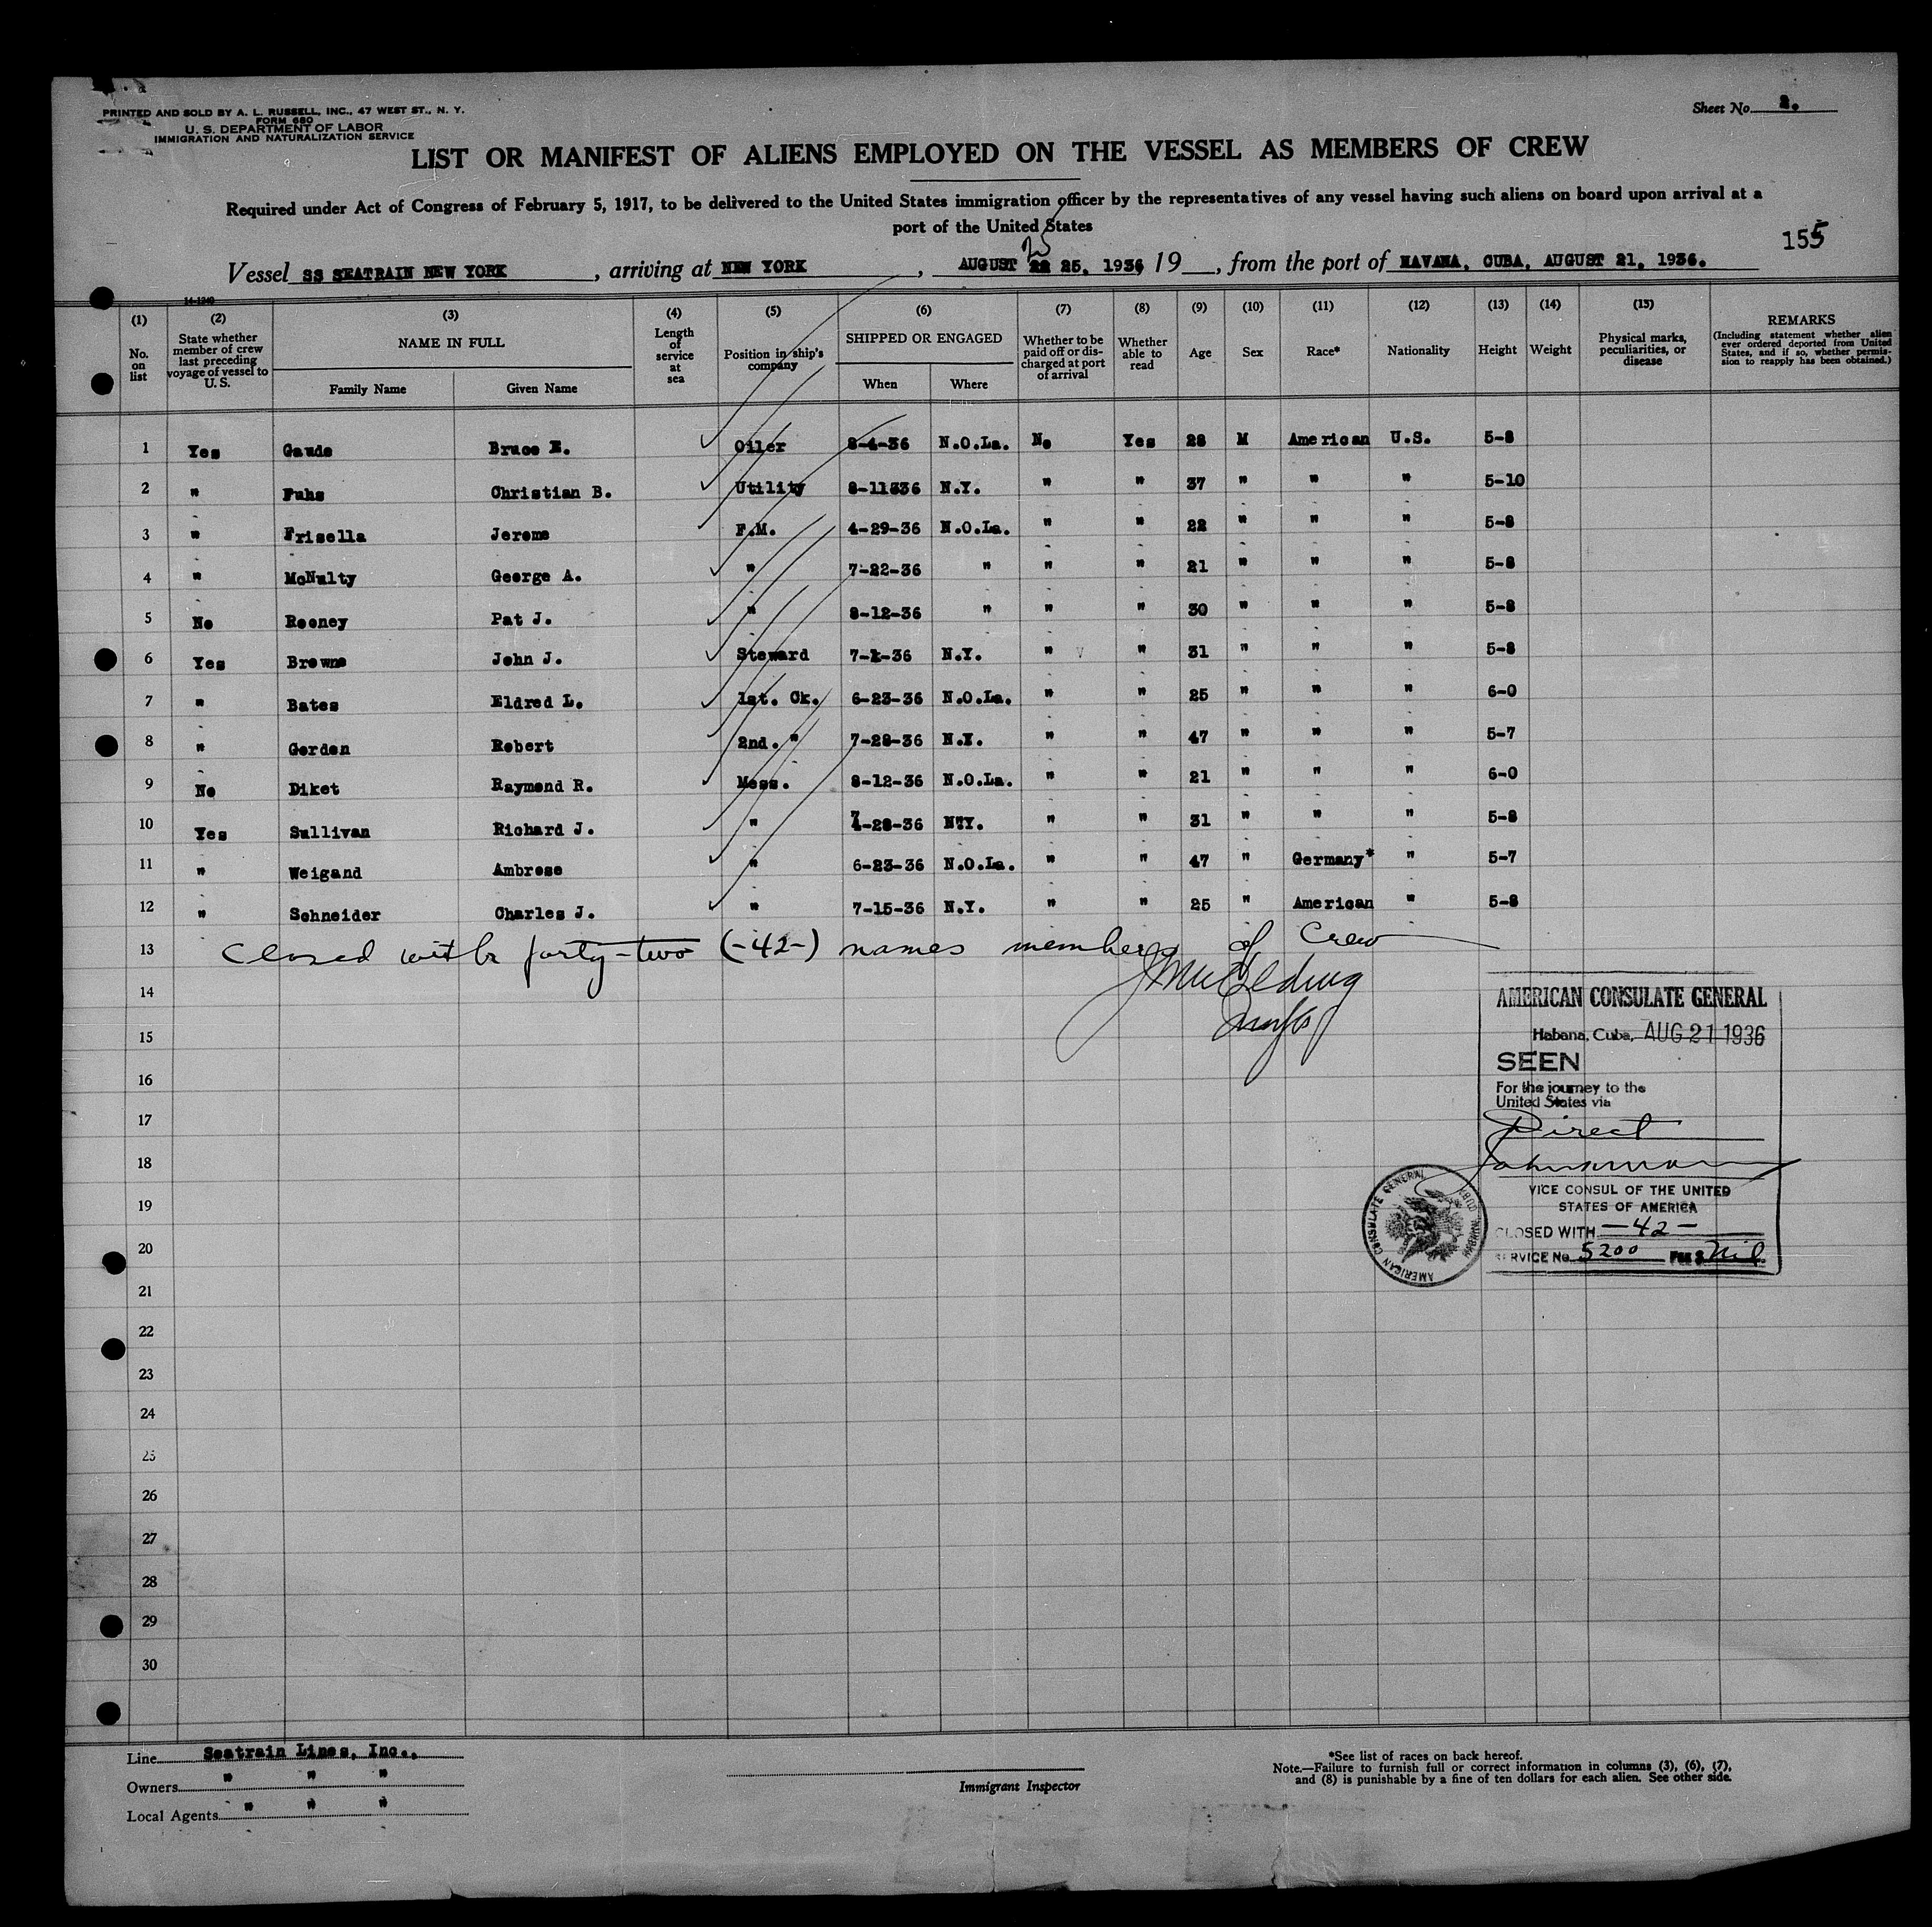 PRINTED AND SOLD BY A. L. RUSSELL, INC., 47 WEST ST., N. Y.
FORM 680
U. S. DEPARTMENT OF LABOR
IMMIGRATION AND NATURALIZATION SERVICE
Sheet No. 2.
LIST OR MANIFEST OF ALIENS EMPLOYED ON THE VESSEL AS MEMBERS OF CREW
Required under Act of Congress of February 5, 1917, to be delivered to the United States immigration officer by the representatives of any vessel having such aliens on board upon arrival at a
port of the United States
155
25
Vessel SS SEATRAIN NEW YORK, arriving at NEW YORK, AUGUST 22 25, 1936, 19__, from the port of HAVANA, CUBA, AUGUST 21, 1936.
14-1240
(1) No. on list
(2) State whether member of crew last preceding voyage of vessel to U. S.
(3) NAME IN FULL Family Name Given Name
(4) Length of service at sea
(5) Position in ship's company
(6) SHIPPED OR ENGAGED When Where
(7) Whether to be paid off or discharged at port of arrival
(8) Whether able to read
(9) Age
(10) Sex
(11) Race*
(12) Nationality
(13) Height
(14) Weight
(15) Physical marks, peculiarities, or disease
REMARKS (Including statement whether alien ever ordered deported from United States, and if so, whether permission to reapply has been obtained.)
1 Yes Gaude Bruce E. Oiler 8-4-36 N.O.La. No Yes 28 M American U.S. 5-8
2 " Fuhs Christian B. Utility 8-11336 N.Y. " " 37 " " " 5-10
3 " Frisella Jerome F.M. 4-29-36 N.O.La. " " 22 " " " 5-8
4 " McNulty George A. " 7-22-36 " " " 21 " " " 5-8
5 No Rooney Pat J. " 8-12-36 " " " 30 " " " 5-8
6 Yes Browne John J. Steward 7-1-36 N.Y. " " 31 " " " 5-8
7 " Bates Eldred L. 1st. Ck. 6-23-36 N.O.La. " " 25 " " " 6-0
8 " Gordon Robert 2nd. " 7-28-36 N.Y. " " 47 " " " 5-7
9 No Diket Raymond R. Mess. 8-12-36 N.O.La. " " 21 " " " 6-0
10 Yes Sullivan Richard J. " 7-28-36 N.Y. " " 31 " " " 5-8
11 " Weigand Ambrose " 6-23-36 N.O.La. " " 47 " Germany* " 5-7
12 " Schneider Charles J. " 7-15-36 N.Y. " " 25 " American " 5-8
13 Closed with forty-two (-42-) names members of Crew
14
15
16
17
18
19
20
21
22
23
24
25
26
27
28
29
30
AMERICAN CONSULATE GENERAL
Habana, Cuba, AUG 21 1936
SEEN
For the journey to the
United States via
Direct
VICE CONSUL OF THE UNITED
STATES OF AMERICA
CLOSED WITH -42-
SERVICE No. 5200 FEE $ Nil.
AMERICAN CONSULATE GENERAL HABANA, CUBA
Line Seatrain Lines, Inc.,
Owners " " "
Local Agents " " "
Immigrant Inspector
*See list of races on back hereof.
Note.—Failure to furnish full or correct information in columns (3), (6), (7),
and (8) is punishable by a fine of ten dollars for each alien. See other side.